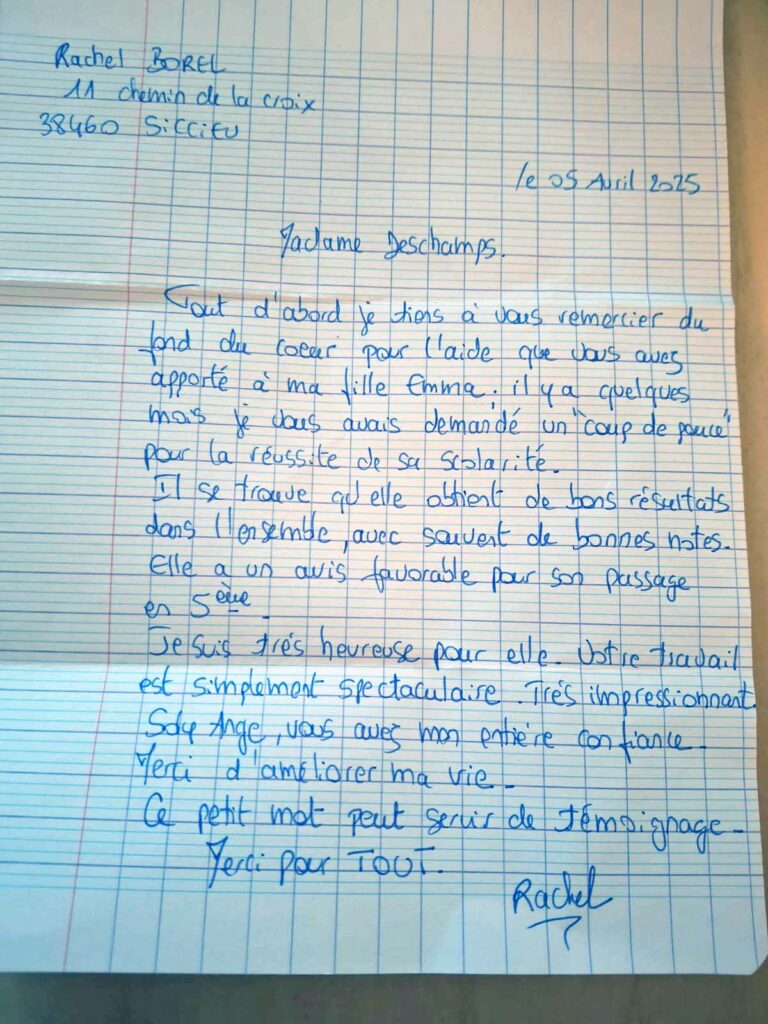 Rachel BOREL
11 chemin de la croix
38460 Siccieu
le 05 Avril 2025
Madame Deschamps.
Tout d'abord je tiens à vous remercier du
fond du coeur pour l'aide que vous avez
apporté à ma fille Emma. il y a quelques
mois je vous avais demandé un "coup de pouce"
pour la réussite de sa scolarité.
Il se trouve qu'elle obtient de bons résultats
dans l'ensemble, avec souvent de bonnes notes.
Elle a un avis favorable pour son passage
en 5ème.
Je suis trés heureuse pour elle. Votre travail
est simplement spectaculaire. Trés impressionnant.
Ange, vous avez mon entière confiance.
Merci d'améliorer ma vie.
Ce petit mot peut servir de témoignage.
Merci pour TOUT.
Rachel